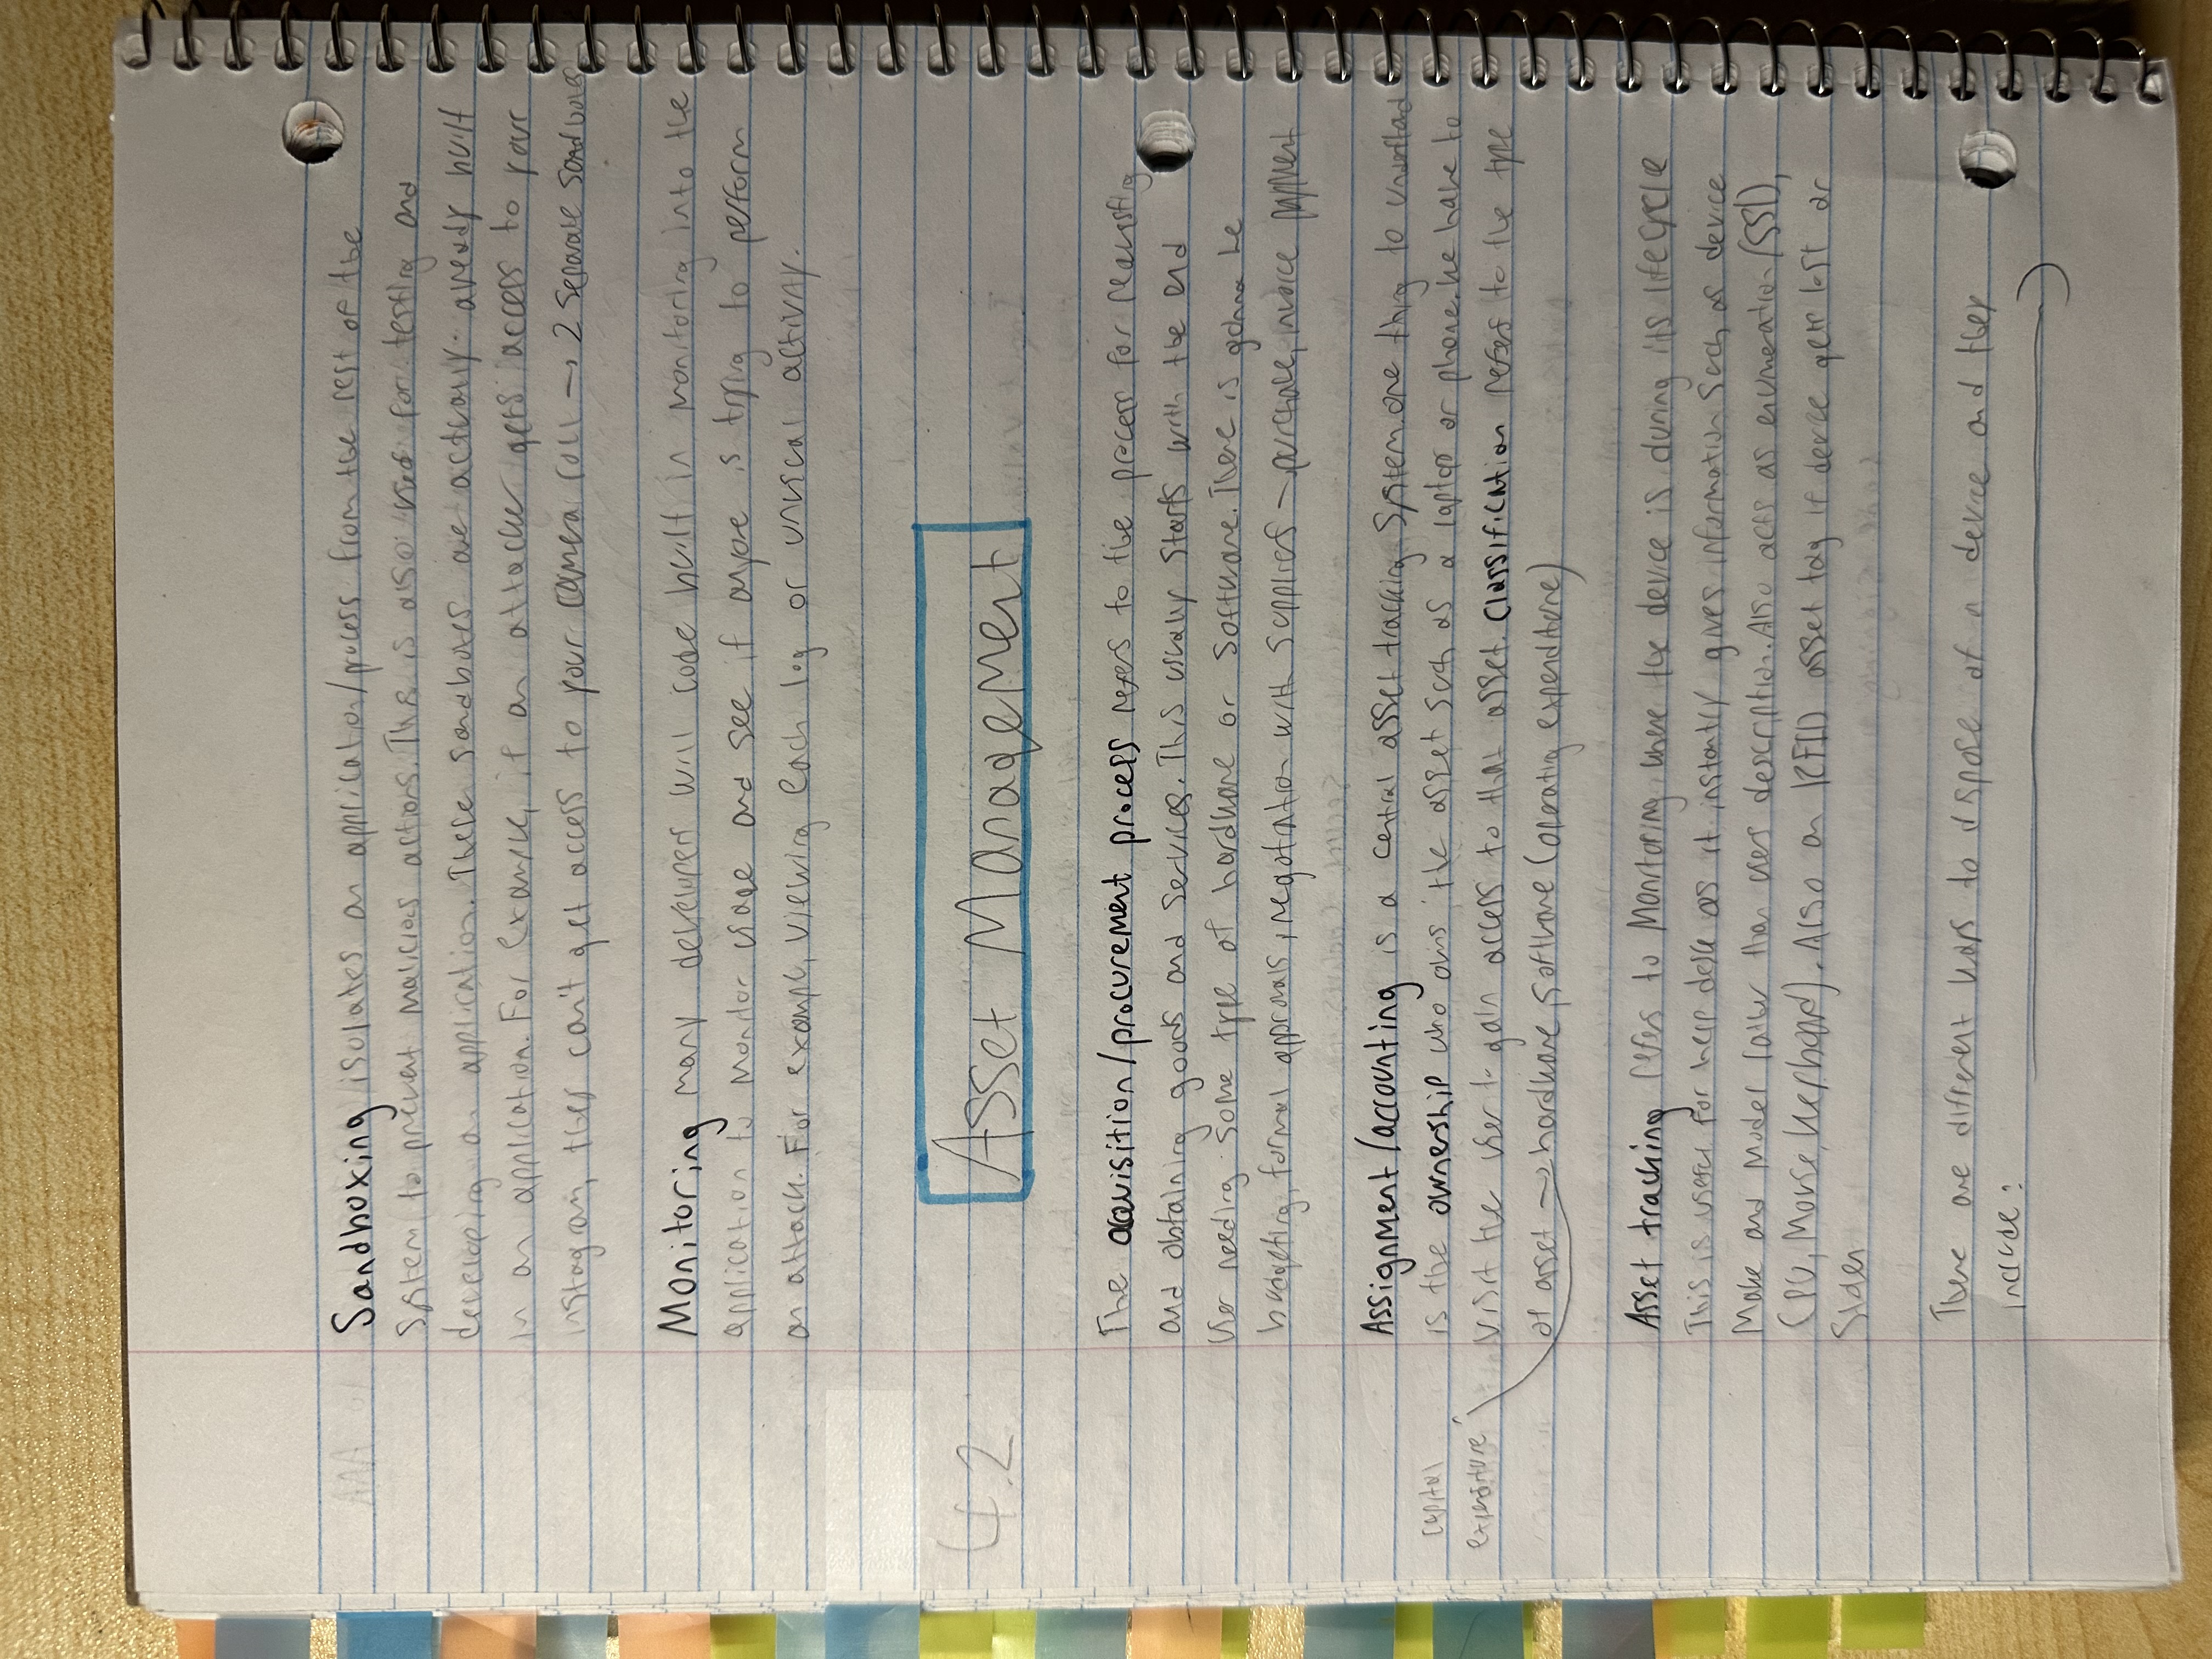 Sandboxing isolates an application/process from the rest of the
system to prevent malicious actions. This is also used for testing and
developing an application. These sandboxes are actually already built
in an application. For example, if an attacker gets access to your
instagram, they can't get access to your camera roll → 2 separate sandboxes
Monitoring many developers will code built in monitoring into the
application to monitor usage and see if anyone is trying to perform
an attack. For example, viewing each log or unusual activity.
4.2
Asset Management
The acquisition/procurement process refers to the process for requesting
and obtaining goods and services. This usually starts with the end
user needing some type of hardware or software. There is gonna be
budgeting, formal approvals, negotiation with suppliers → purchase, invoice payment
Assignment/accounting is a central asset tracking system. one thing to understand
is the ownership who owns the asset such as a laptop or phone. we have to
visit the user to gain access to that asset. Classification refers to the type
of asset → hardware, software (operating expenditure)
capital
expenditure
Asset tracking refers to monitoring where the device is during its lifecycle
This is useful for help desk as it instantly gives information such as device
make and model rather than users description. Also acts as enumeration (SSD,
CPU, Mouse, Keyboard). Also an RFID asset tag if device gets lost or
stolen
There are different ways to dispose of a device and they
include: